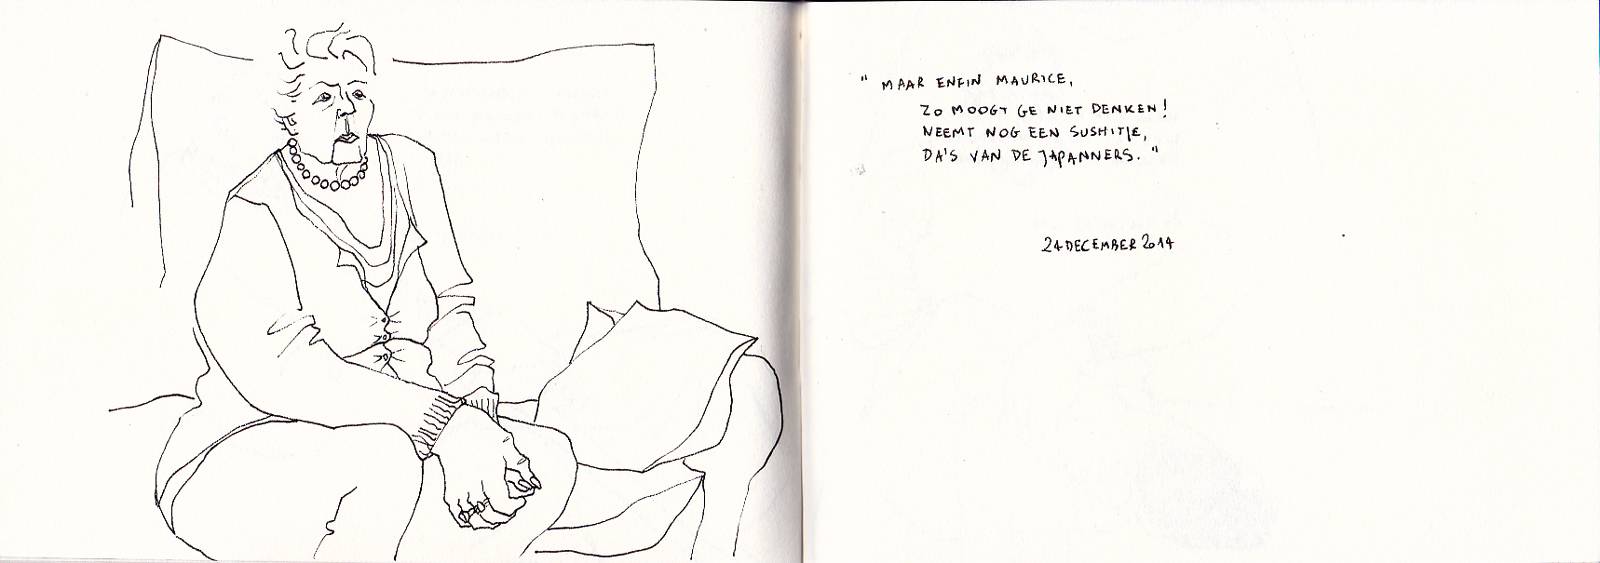 " MAAR ENFIN MAURICE,
ZO MOOGT GE NIET DENKEN!
NEEMT NOG EEN SUSHITJE,
DA'S VAN DE JAPANNERS. "
24 DECEMBER 2014